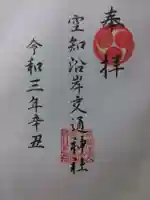 奉拝
空知沿岸交通神社
令和三年辛丑